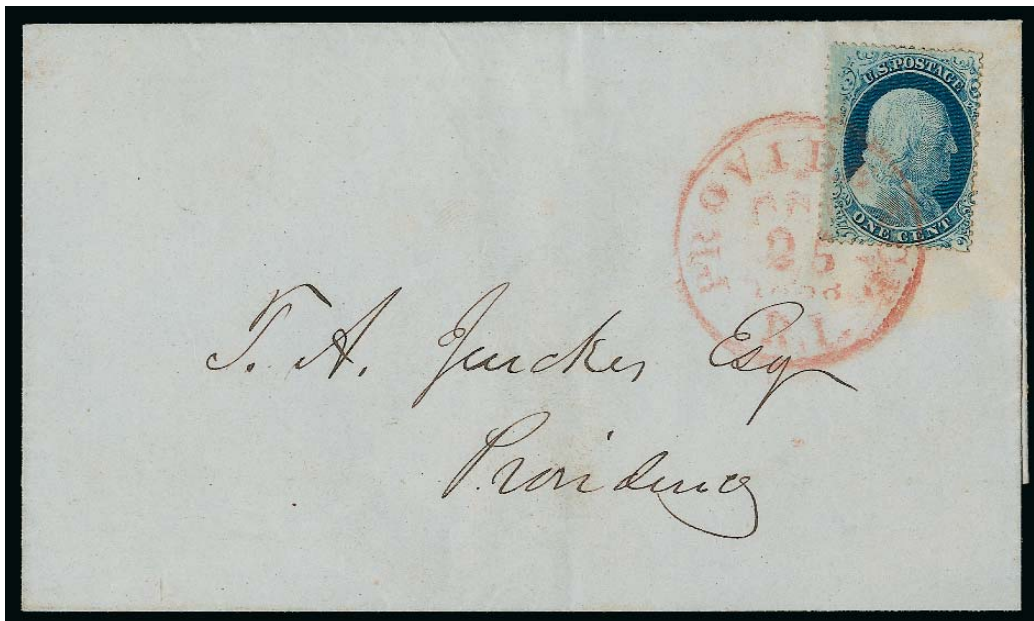 U.S. POSTAGE
ONE CENT
PROVIDENCE
25
R.I.
T. A. Jenckes Esq
Providence